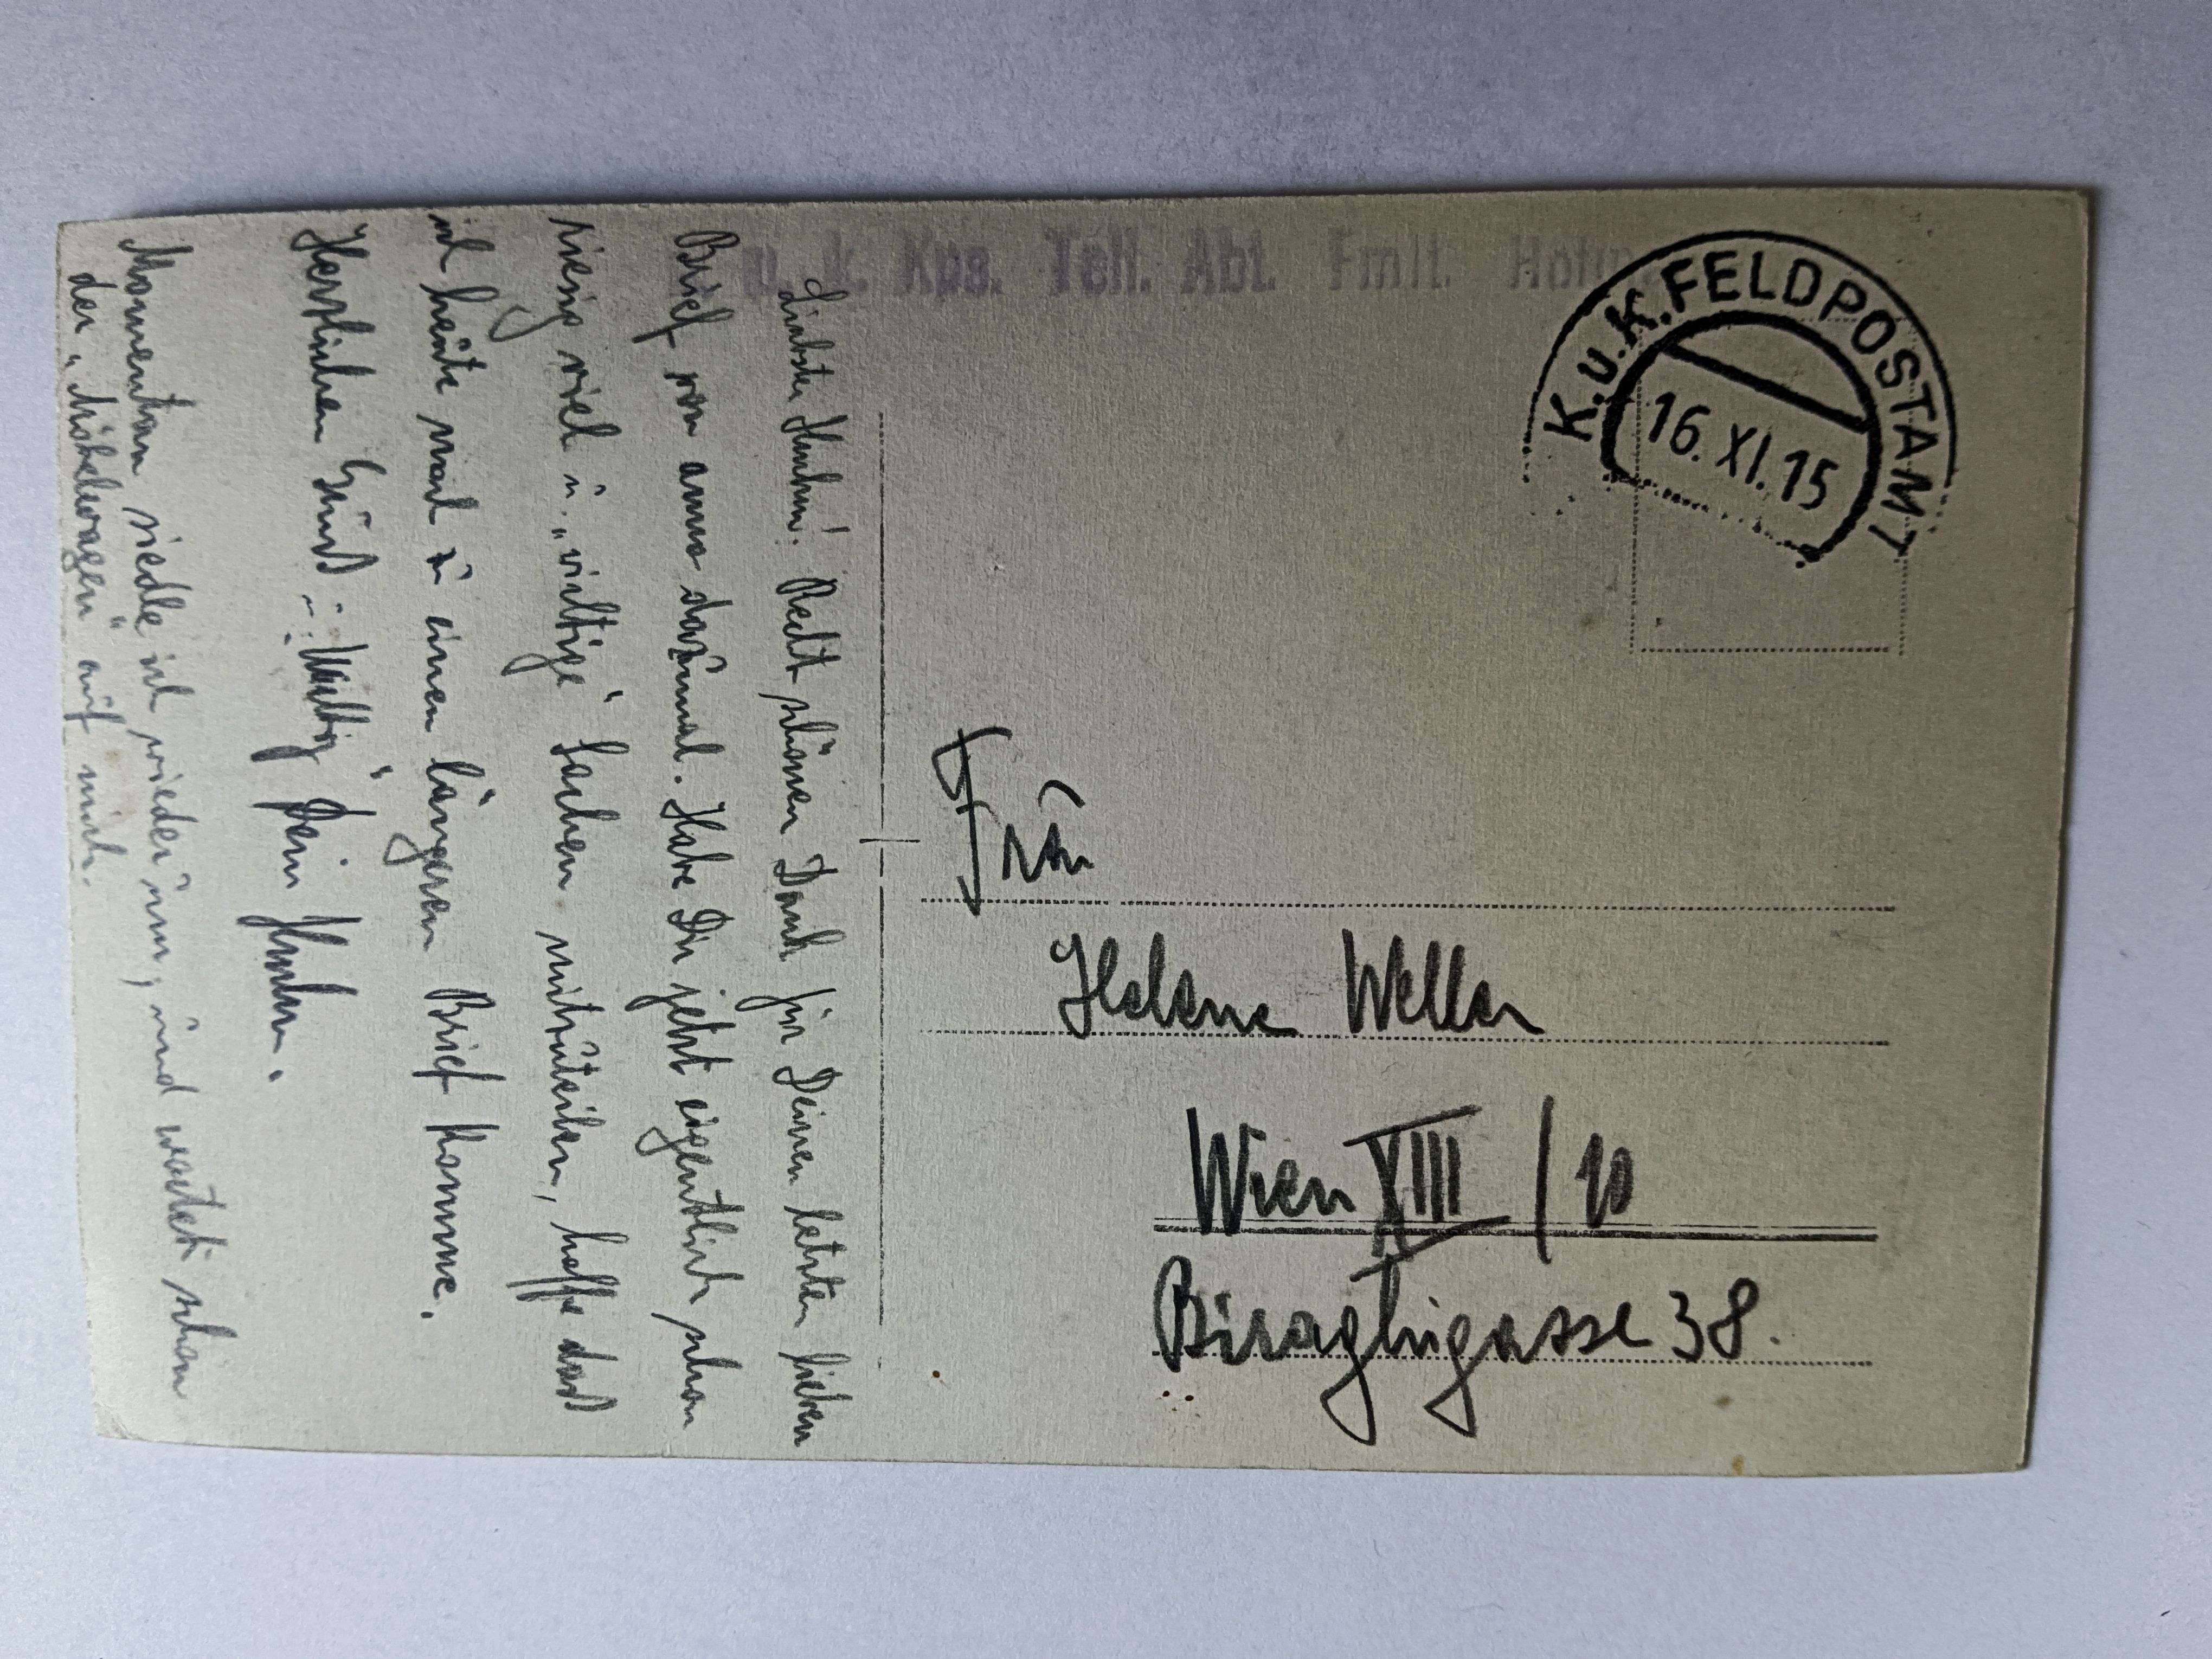 u. k. Kps. Tell. Abt. Fmlt. Hofm
K.u.K. FELDPOSTAMT
16. XI. 15
Liebste! Recht schönen Dank für Deinen letzten lieben
Brief von anno dazumal. Habe Dir jetzt eigentlich schon
riesig viel ü. „wichtige" Sachen mitzuteilen, hoffe das
ich heute noch zu einen längeren Brief komme.
Herzlichen Gruß Dein
Momentan siedle ich wieder um, und wartet schon
der „Möbelwagen" auf mich.
Frau
Helene Weller
Wien XIII / 10
Biraghigasse 38.